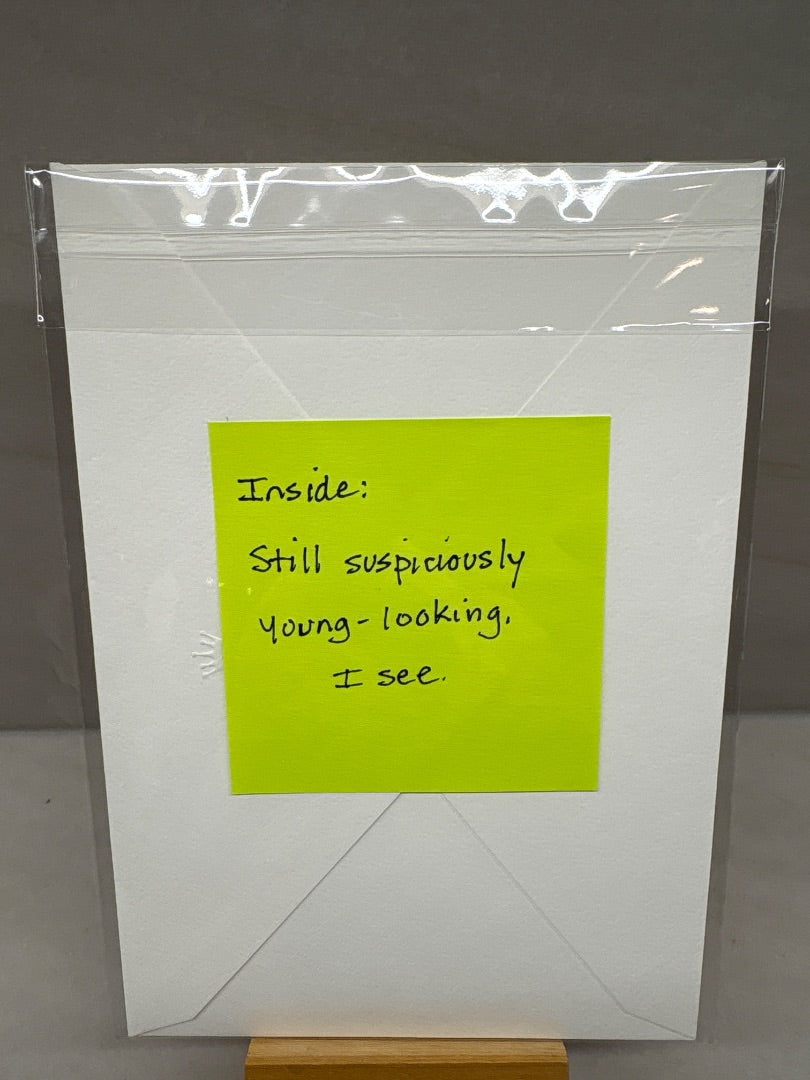 Inside:
Still suspiciously
young-looking,
I see.